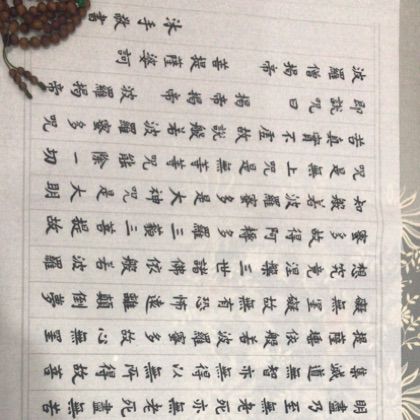 明盡乃至無老死亦無老死盡無苦
集滅道無智亦無得以無所得故菩
提薩埵依般若波羅蜜多故心無罣
礙無罣礙故無有恐怖遠離顛倒夢
想究竟涅槃三世諸佛依般若波羅
蜜多故得阿耨多羅三藐三菩提故
知般若波羅蜜多是大神咒是大明
咒是無上咒是無等等咒能除一切
苦真實不虛故說般若波羅蜜多咒
即說咒曰 揭帝揭帝 波羅揭帝
波羅僧揭帝 菩提薩婆訶
沐手敬書